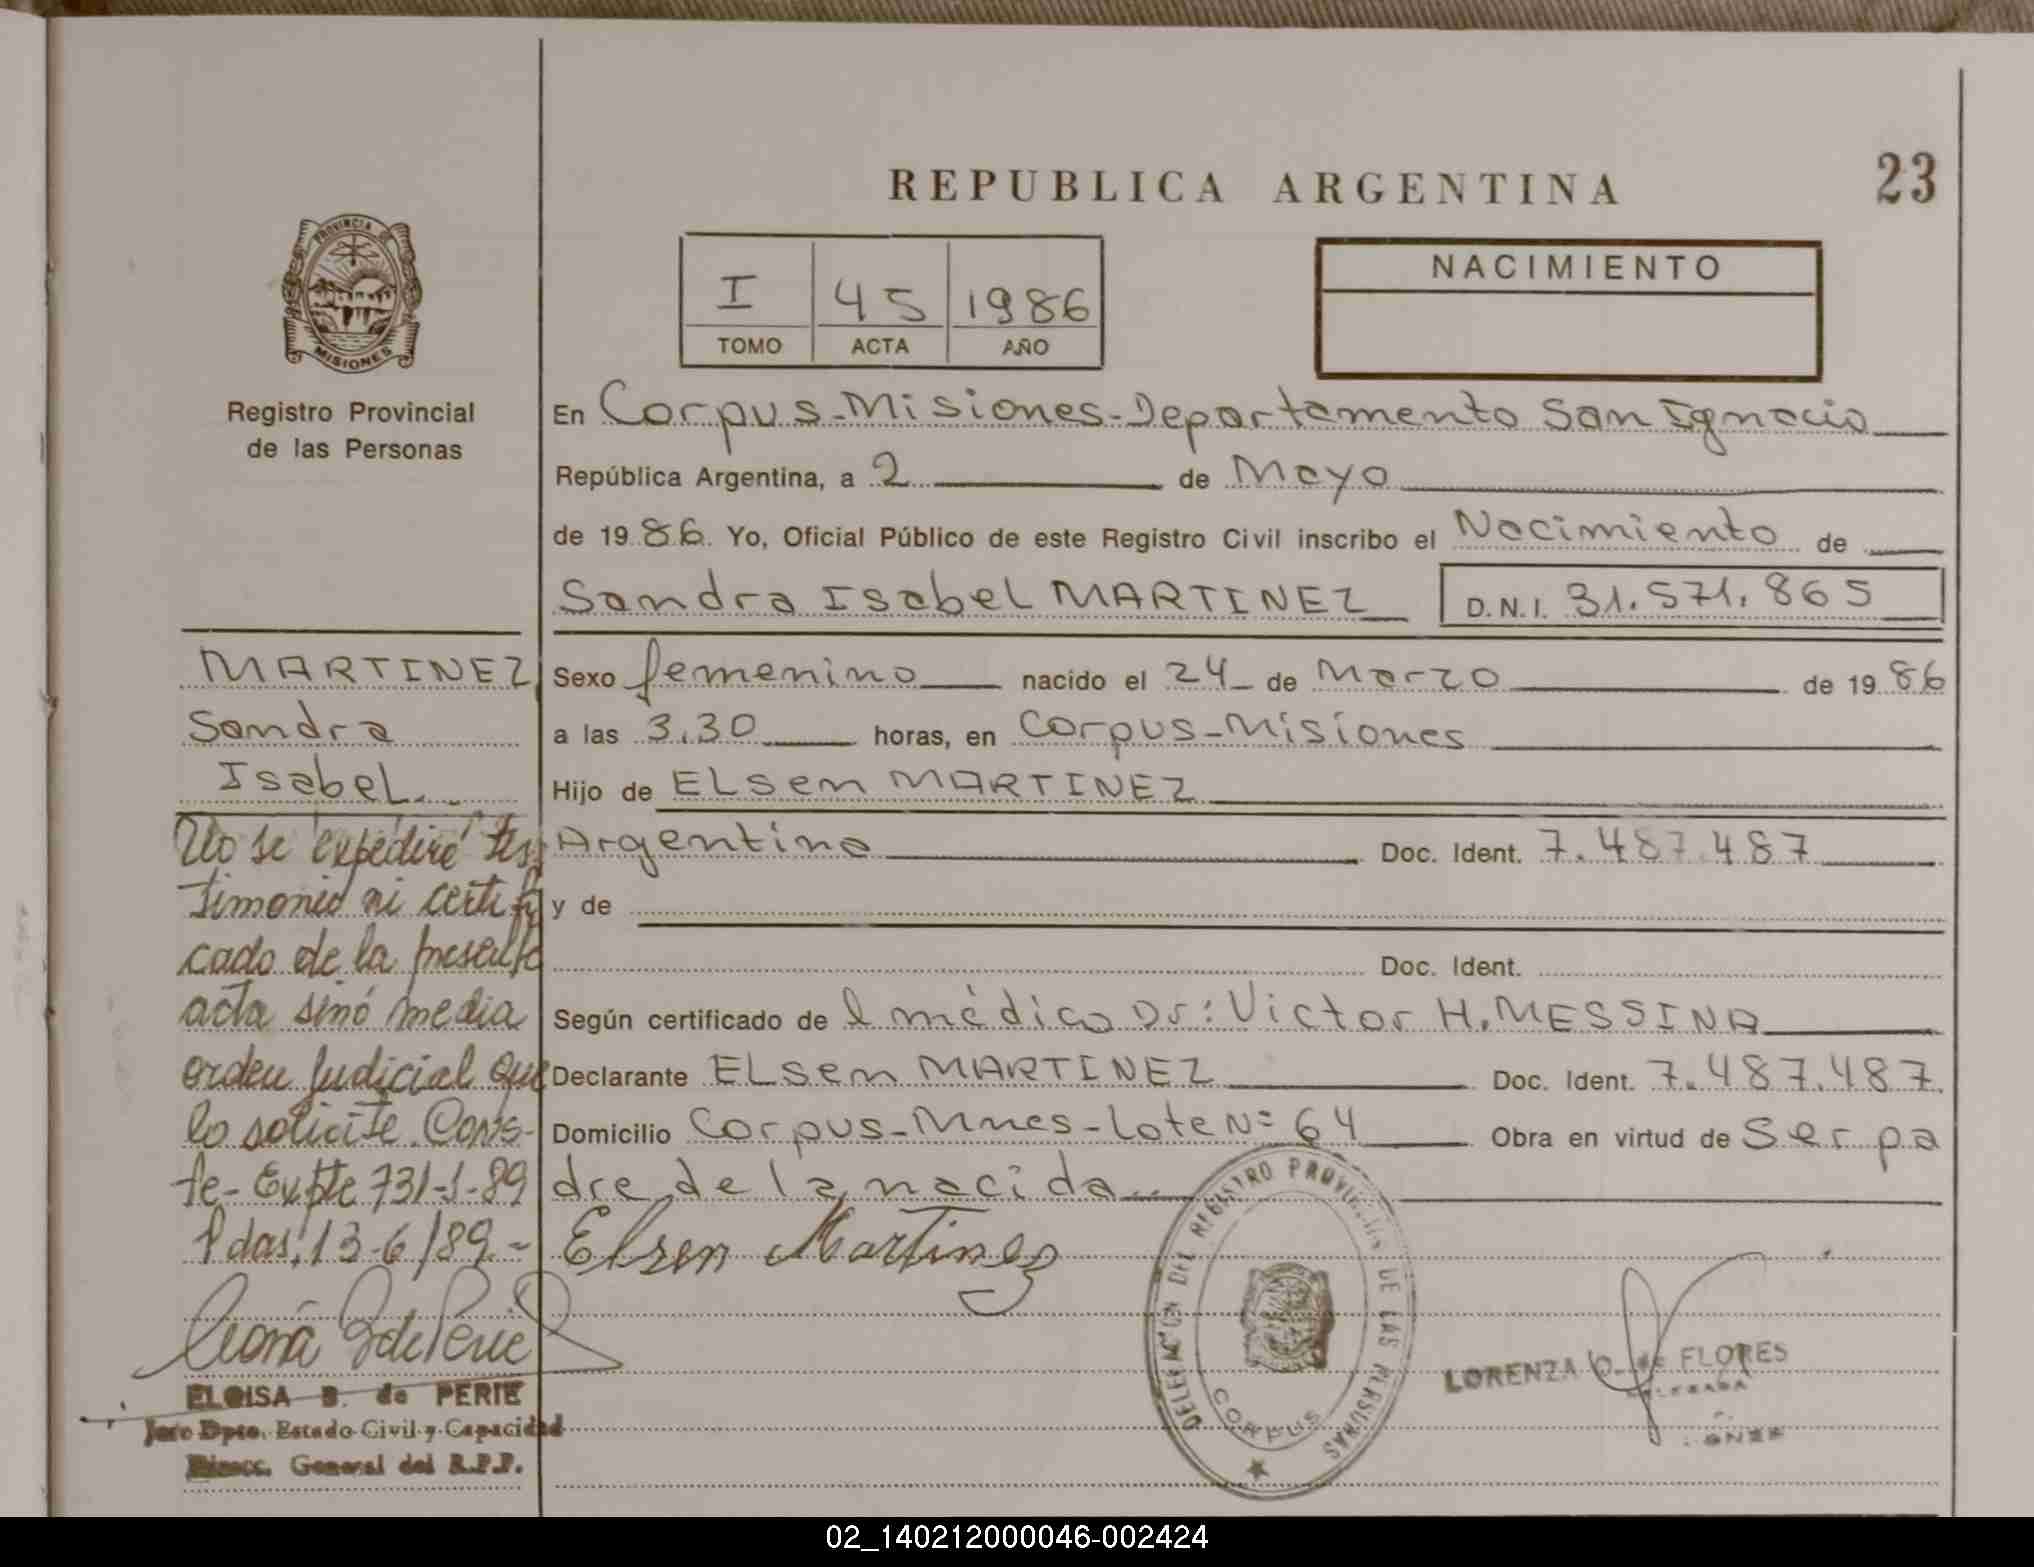 REPUBLICA ARGENTINA
23
PROVINCIA DE
MISIONES
Registro Provincial
de las Personas
I 45 1986
TOMO ACTA AÑO
NACIMIENTO
En Corpus-Misiones-Departamento San Ignacio
República Argentina, a 2 de Mayo
de 1986. Yo, Oficial Público de este Registro Civil inscribo el Nacimiento de
Sandra Isabel MARTINEZ D.N.I. 31.571.865
MARTINEZ,
Sandra
Isabel.
Sexo femenino nacido el 24 de Marzo de 1986
a las 3.30 horas, en Corpus-Misiones
Hijo de ELsen MARTINEZ
Argentino Doc. Ident. 7.487.487
y de
Doc. Ident.
Según certificado de l médico Dr: Victor H. MESSINA
Declarante ELsen MARTINEZ Doc. Ident. 7.487.487
Domicilio Corpus-Mnes-Lote Nº 64 Obra en virtud de Ser pa
dre de la nacida..
Elsen Martinez
No se expediré tes
timonio ni certifi
cado de la presente
acta sinó media
orden Judicial que
lo solicite. Cons-
te- Expte 731-J-89
Pdas, 13-6/89.-
ELOISA B. de PERIE
Jefe Dpto. Estado Civil y Capacidad
Direcc. General del R.P.P.
DELEGACION DEL REGISTRO PROVINCIAL DE LAS PERSONAS
CORPUS
LORENZA de FLORES
DELEGADA
02_140212000046-002424